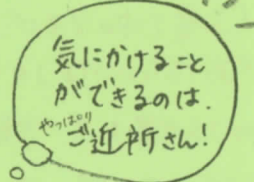 気にかけること
ができるのは、
やっぱり
ご近所さん!